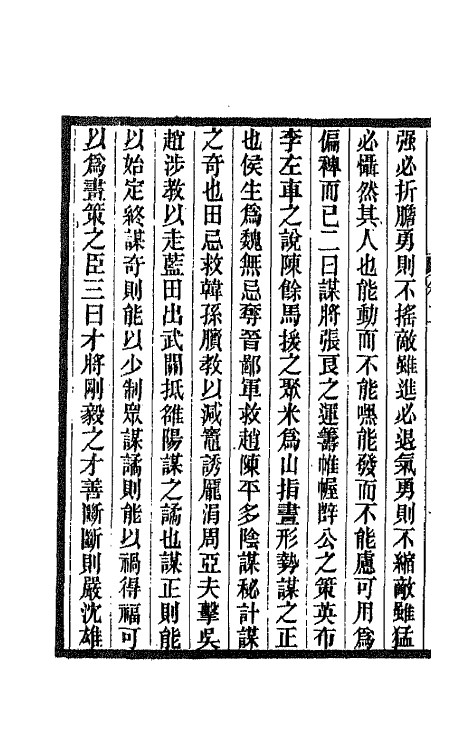 强必折膽勇則不搖敵雖進必退氣勇則不縮敵雖猛
必懾然其人也能動而不能嘿能發而不能慮可用爲
偏稗而已二曰謀將張良之運籌帷幄薛公之策英布
李左車之說陳餘馬援之聚米爲山指畫形勢謀之正
也侯生爲魏無忌奪晉鄙軍救趙陳平多陰謀秘計謀
之奇也田忌救韓孫臏教以減竈誘龐涓周亞夫擊吳
趙涉教以走藍田出武關抵雒陽謀之譎也謀正則能
以始定終謀奇則能以少制眾謀譎則能以禍得福可
以爲畫策之臣三曰才將剛毅之才善斷斷則嚴沈雄